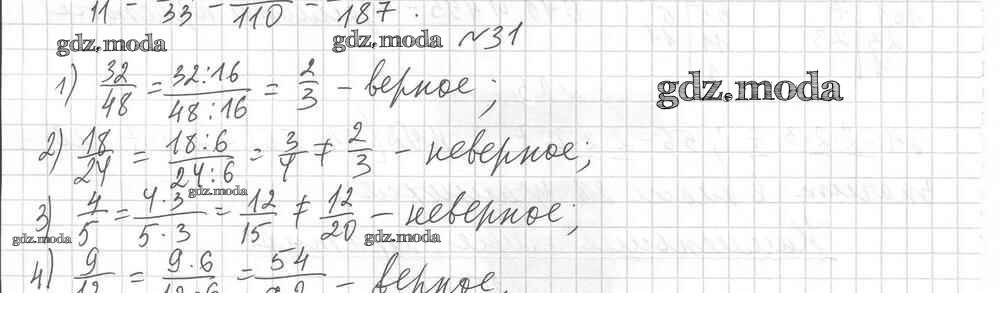 11 - 33 - 110 - 187.
gdz.moda gdz.moda №31
1) 32/48 = 32:16/48:16 = 2/3 - верное; gdz.moda
2) 18/24 = 18:6/24:6 = 3/4 ≠ 2/3 - неверное;
gdz.moda
3) 4/5 = 4·3/5·3 = 12/15 ≠ 12/20 - неверное;
gdz.moda gdz.moda
4) 9/12 = 9·6/12·6 = 54 - верное.